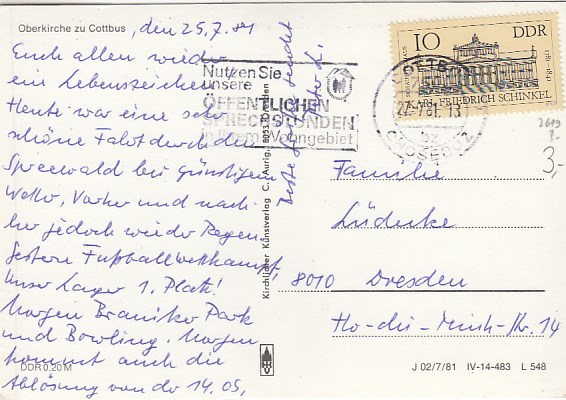 Oberkirche zu Cottbus, den 25.7.81
Euch allen wieder
ein Lebenszeichen.
Heute war eine sehr
schöne Fahrt durch den
Spreewald bei günstigem
Wetter, Vorher und nach-
her jedoch wieder Regen.
Gestern Fußballwettkampf,
Unser Lager 1. Platz!
Morgen Branitzer Park
und Bowling. Morgen
kommt auch die
Ablösung von der 14. OS,
DDR 0,20 M
Beste Grüße sendet
Kirchlicher Kunstverlag C. Aurig, 8053 Dresden
Nutzen Sie
unsere
ÖFFENTLICHEN
SPRECHSTUNDEN
in Ihrem Wohngebiet
COTTBUS
27.7.81.13
CHOSEBUZ
10 DDR
KARL FRIEDRICH SCHINKEL
1781-1981
2619
3,-
Familie
Lüdecke
8010 Dresden
Ho-chi-Minh-Str. 14
J 02/7/81 IV-14-483 L 548